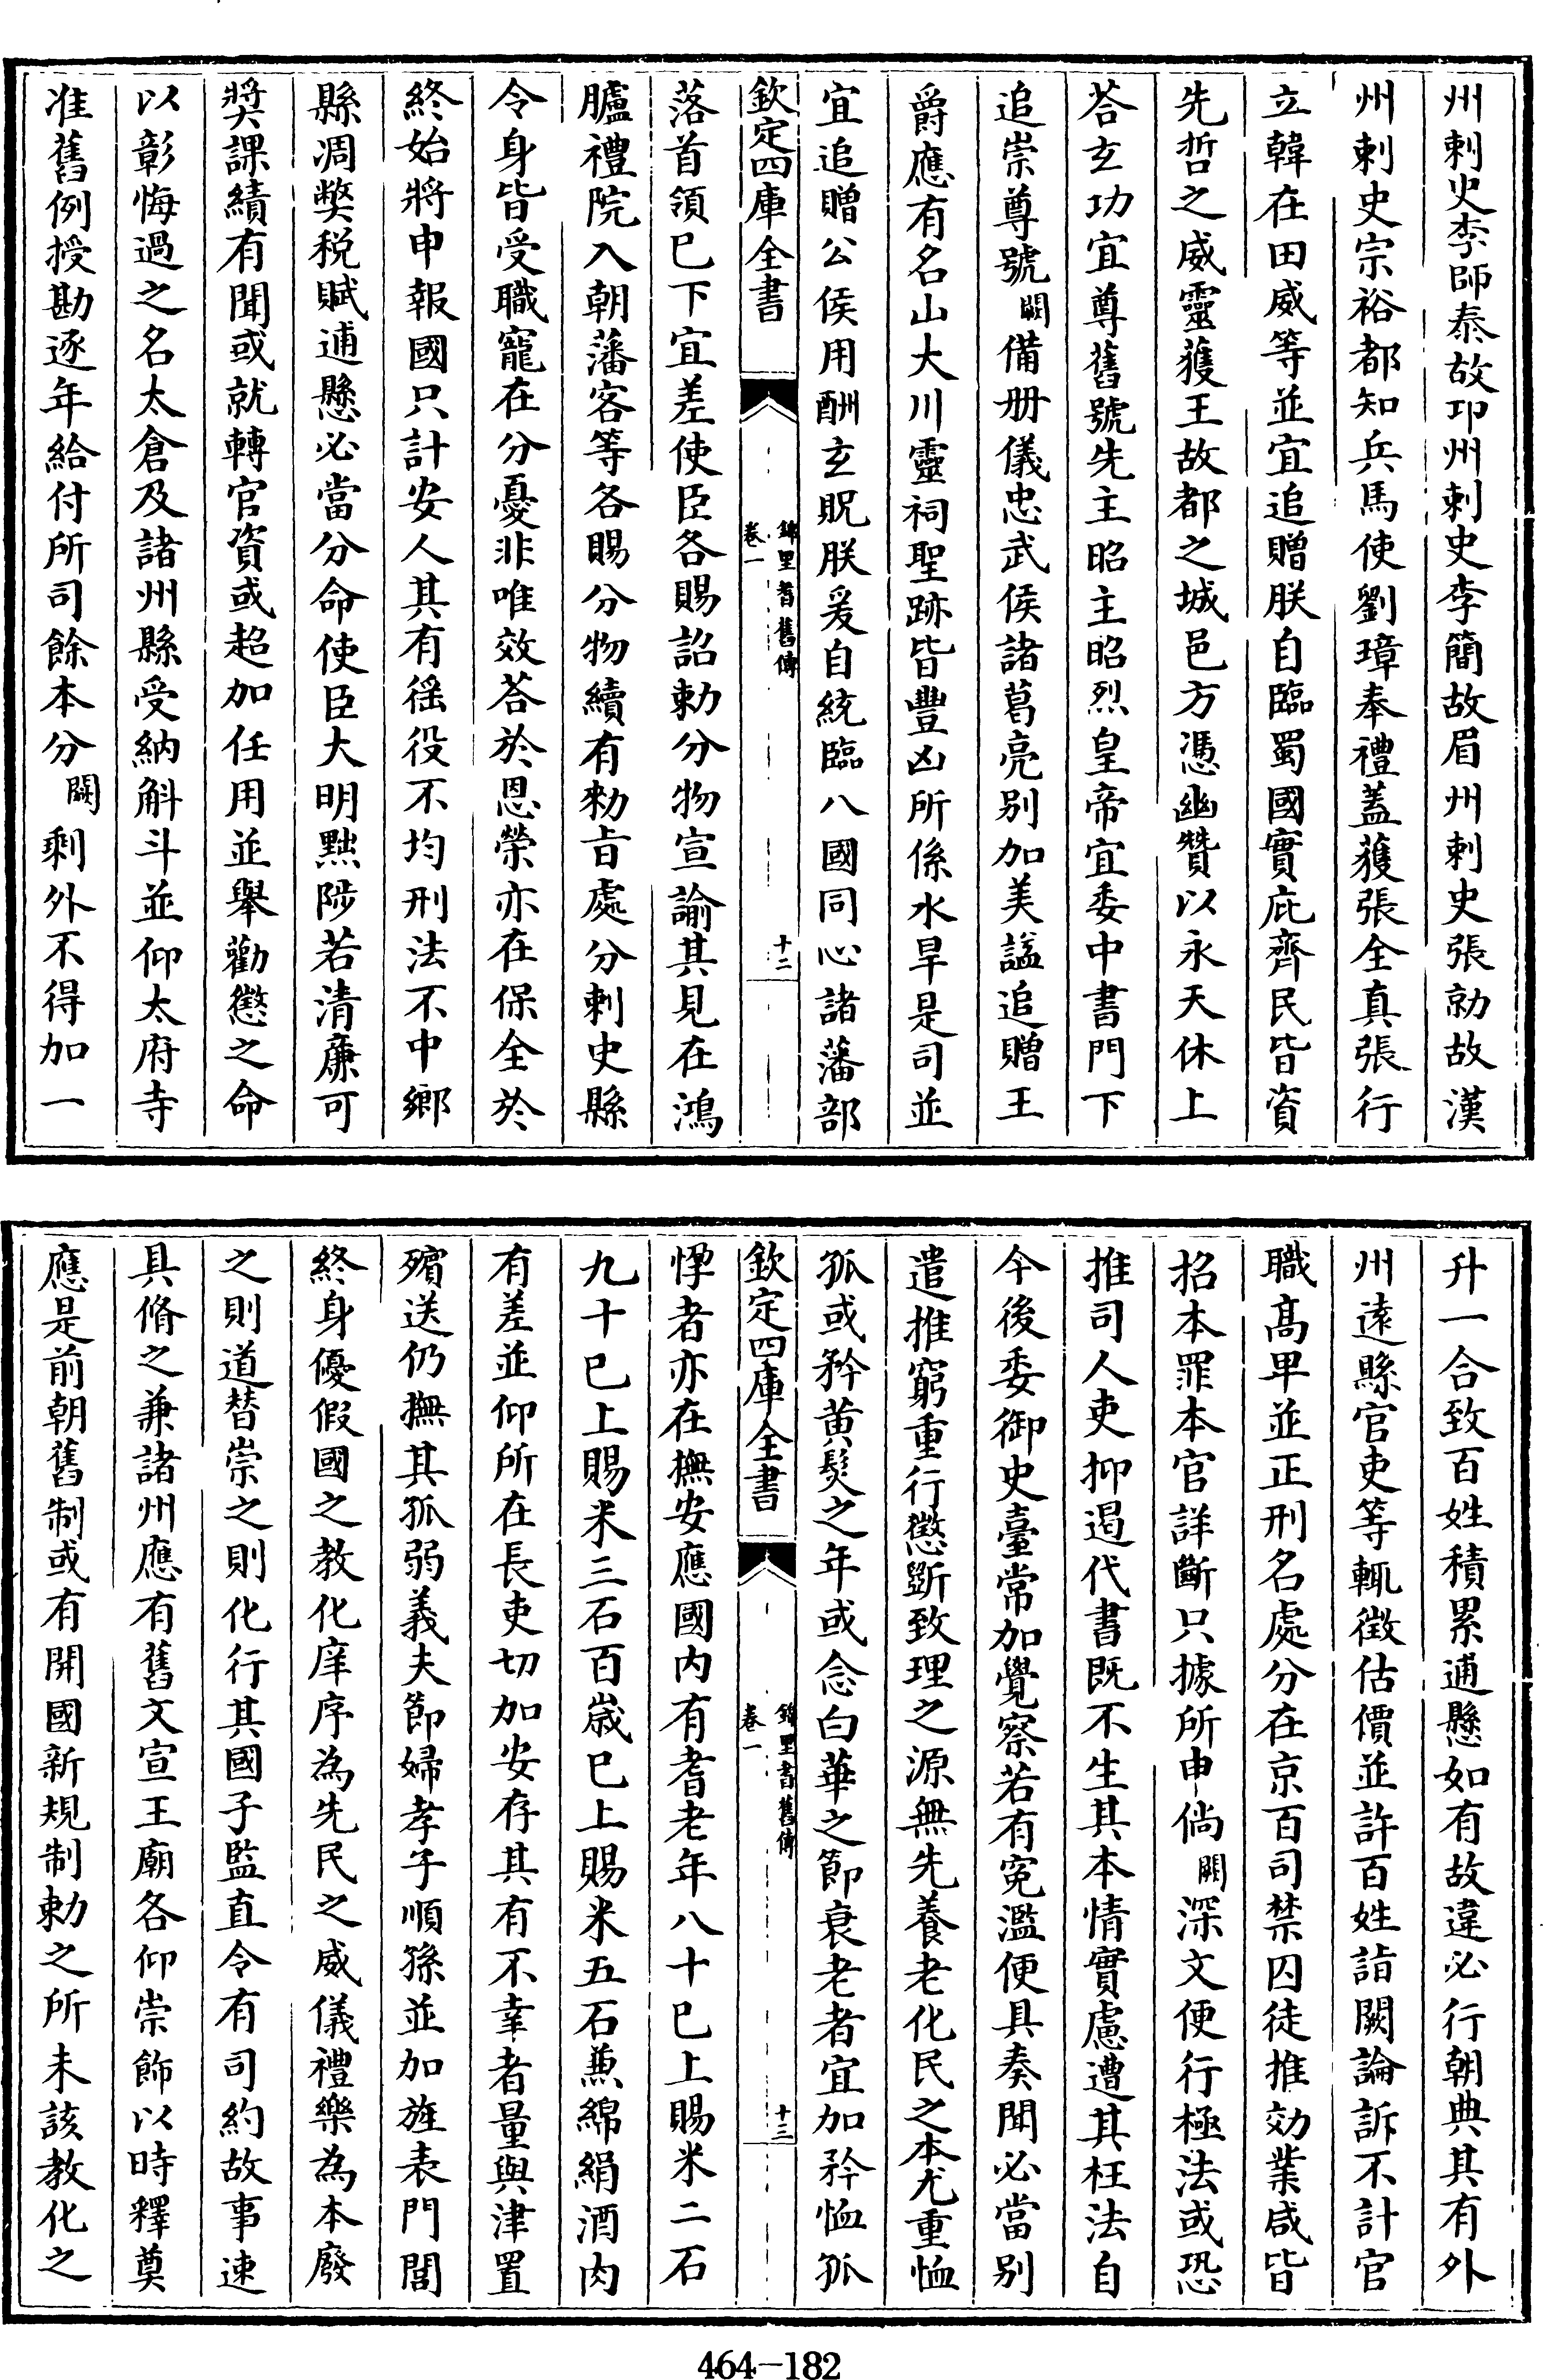 州刺史李師泰故邛州刺史李簡故眉州刺史張勍故漢
州刺史宗裕都知兵馬使劉璋奉禮蓋獲張全真張行
立韓在田威等並宜追贈朕自臨蜀國實庇齊民皆資
先哲之威靈獲王故都之城邑方憑幽贊以永天休上
荅玄功宜尊舊號先主昭主昭烈皇帝宜委中書門下
追崇尊號闕備册儀忠武侯諸葛亮别加美諡追贈王
爵應有名山大川靈祠聖跡皆豐凶所係水旱是司並
宜追贈公侯用酬玄貺朕爰自統臨八國同心諸藩部
欽定四庫全書
錦里耆舊傳
卷一
十二
落首領已下宜差使臣各賜詔勅分物宣諭其見在鴻
臚禮院入朝藩客等各賜分物續有勑旨處分刺史縣
令身皆受職寵在分憂非唯效荅於恩榮亦在保全於
終始將申報國只計安人其有徭役不均刑法不中鄉
縣凋弊税賦逋懸必當分命使臣大明黜陟若清廉可
奬課績有聞或就轉官資或超加任用並舉勸懲之命
以彰悔過之名太倉及諸州縣受納斛斗並仰太府寺
准舊例授勘逐年給付所司餘本分闕剩外不得加一
升一合致百姓積累逋懸如有故違必行朝典其有外
州遠縣官吏等輒徴估價並許百姓詣闕論訴不計官
職髙卑並正刑名處分在京百司禁囚徒推効業咸皆
招本罪本官詳斷只據所申倘闕深文便行極法或恐
推司人吏抑遏代書既不生其本情實慮遭其枉法自
今後委御史臺常加覺察若有寃濫便具奏聞必當别
遣推窮重行懲斷致理之源無先養老化民之本尤重恤
孤或矜黄髮之年或念白華之節衰老者宜加矜恤孤
欽定四庫全書
錦里耆舊傳
卷一
十三
惸者亦在撫安應國内有耆老年八十已上賜米二石
九十已上賜米三石百歲已上賜米五石兼綿絹酒肉
有差並仰所在長吏切加安存其有不幸者量與津置
殯送仍撫其孤弱義夫節婦孝子順孫並加旌表門閭
終身優假國之教化庠序為先民之威儀禮樂為本廢
之則道替崇之則化行其國子監直令有司約故事速
具脩之兼諸州應有舊文宣王廟各仰崇飾以時釋奠
應是前朝舊制或有開國新規制勅之所未該教化之
464-182